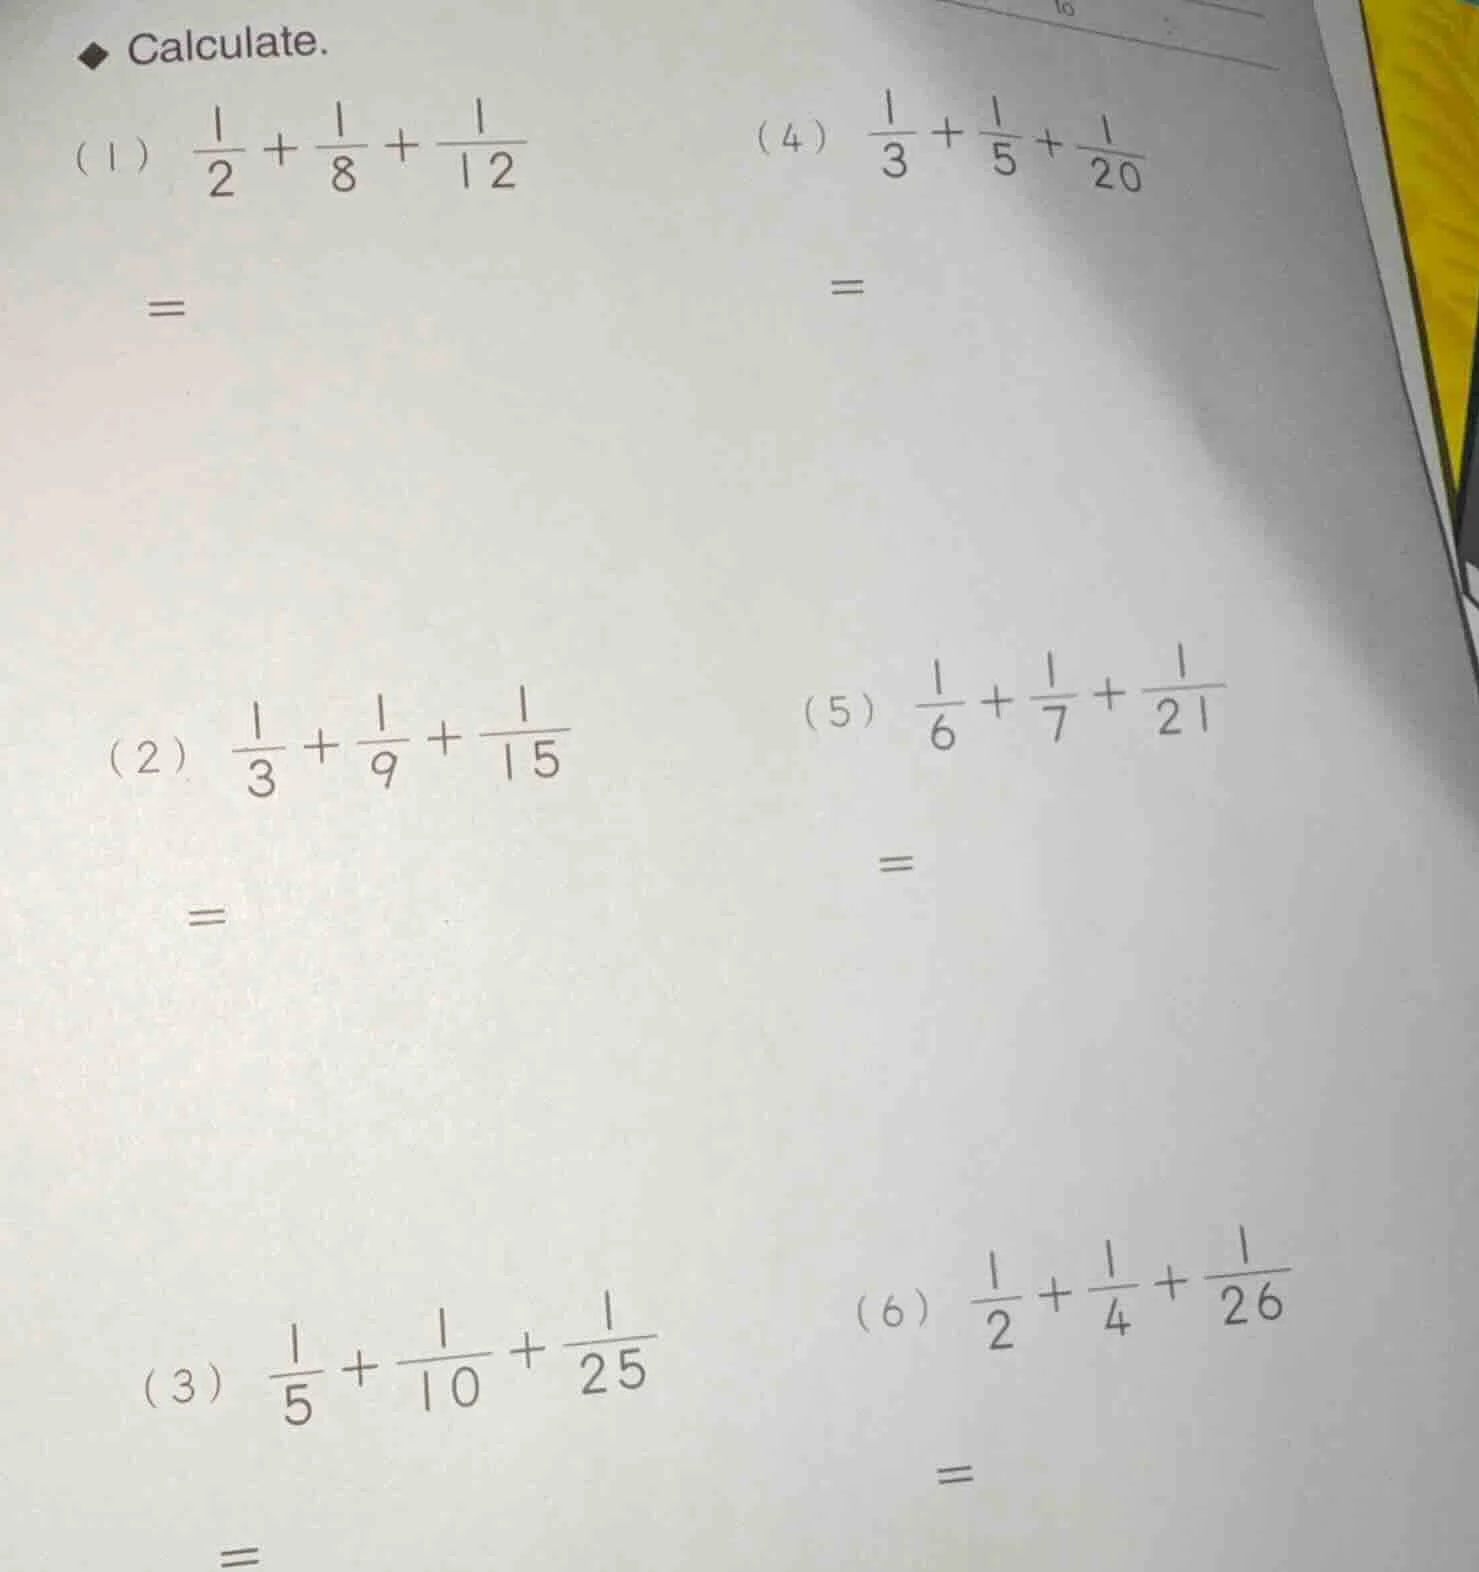 10
◆ Calculate.
(1) 1/2 + 1/8 + 1/12
=
(2) 1/3 + 1/9 + 1/15
=
(3) 1/5 + 1/10 + 1/25
=
(4) 1/3 + 1/5 + 1/20
=
(5) 1/6 + 1/7 + 1/21
=
(6) 1/2 + 1/4 + 1/26
=